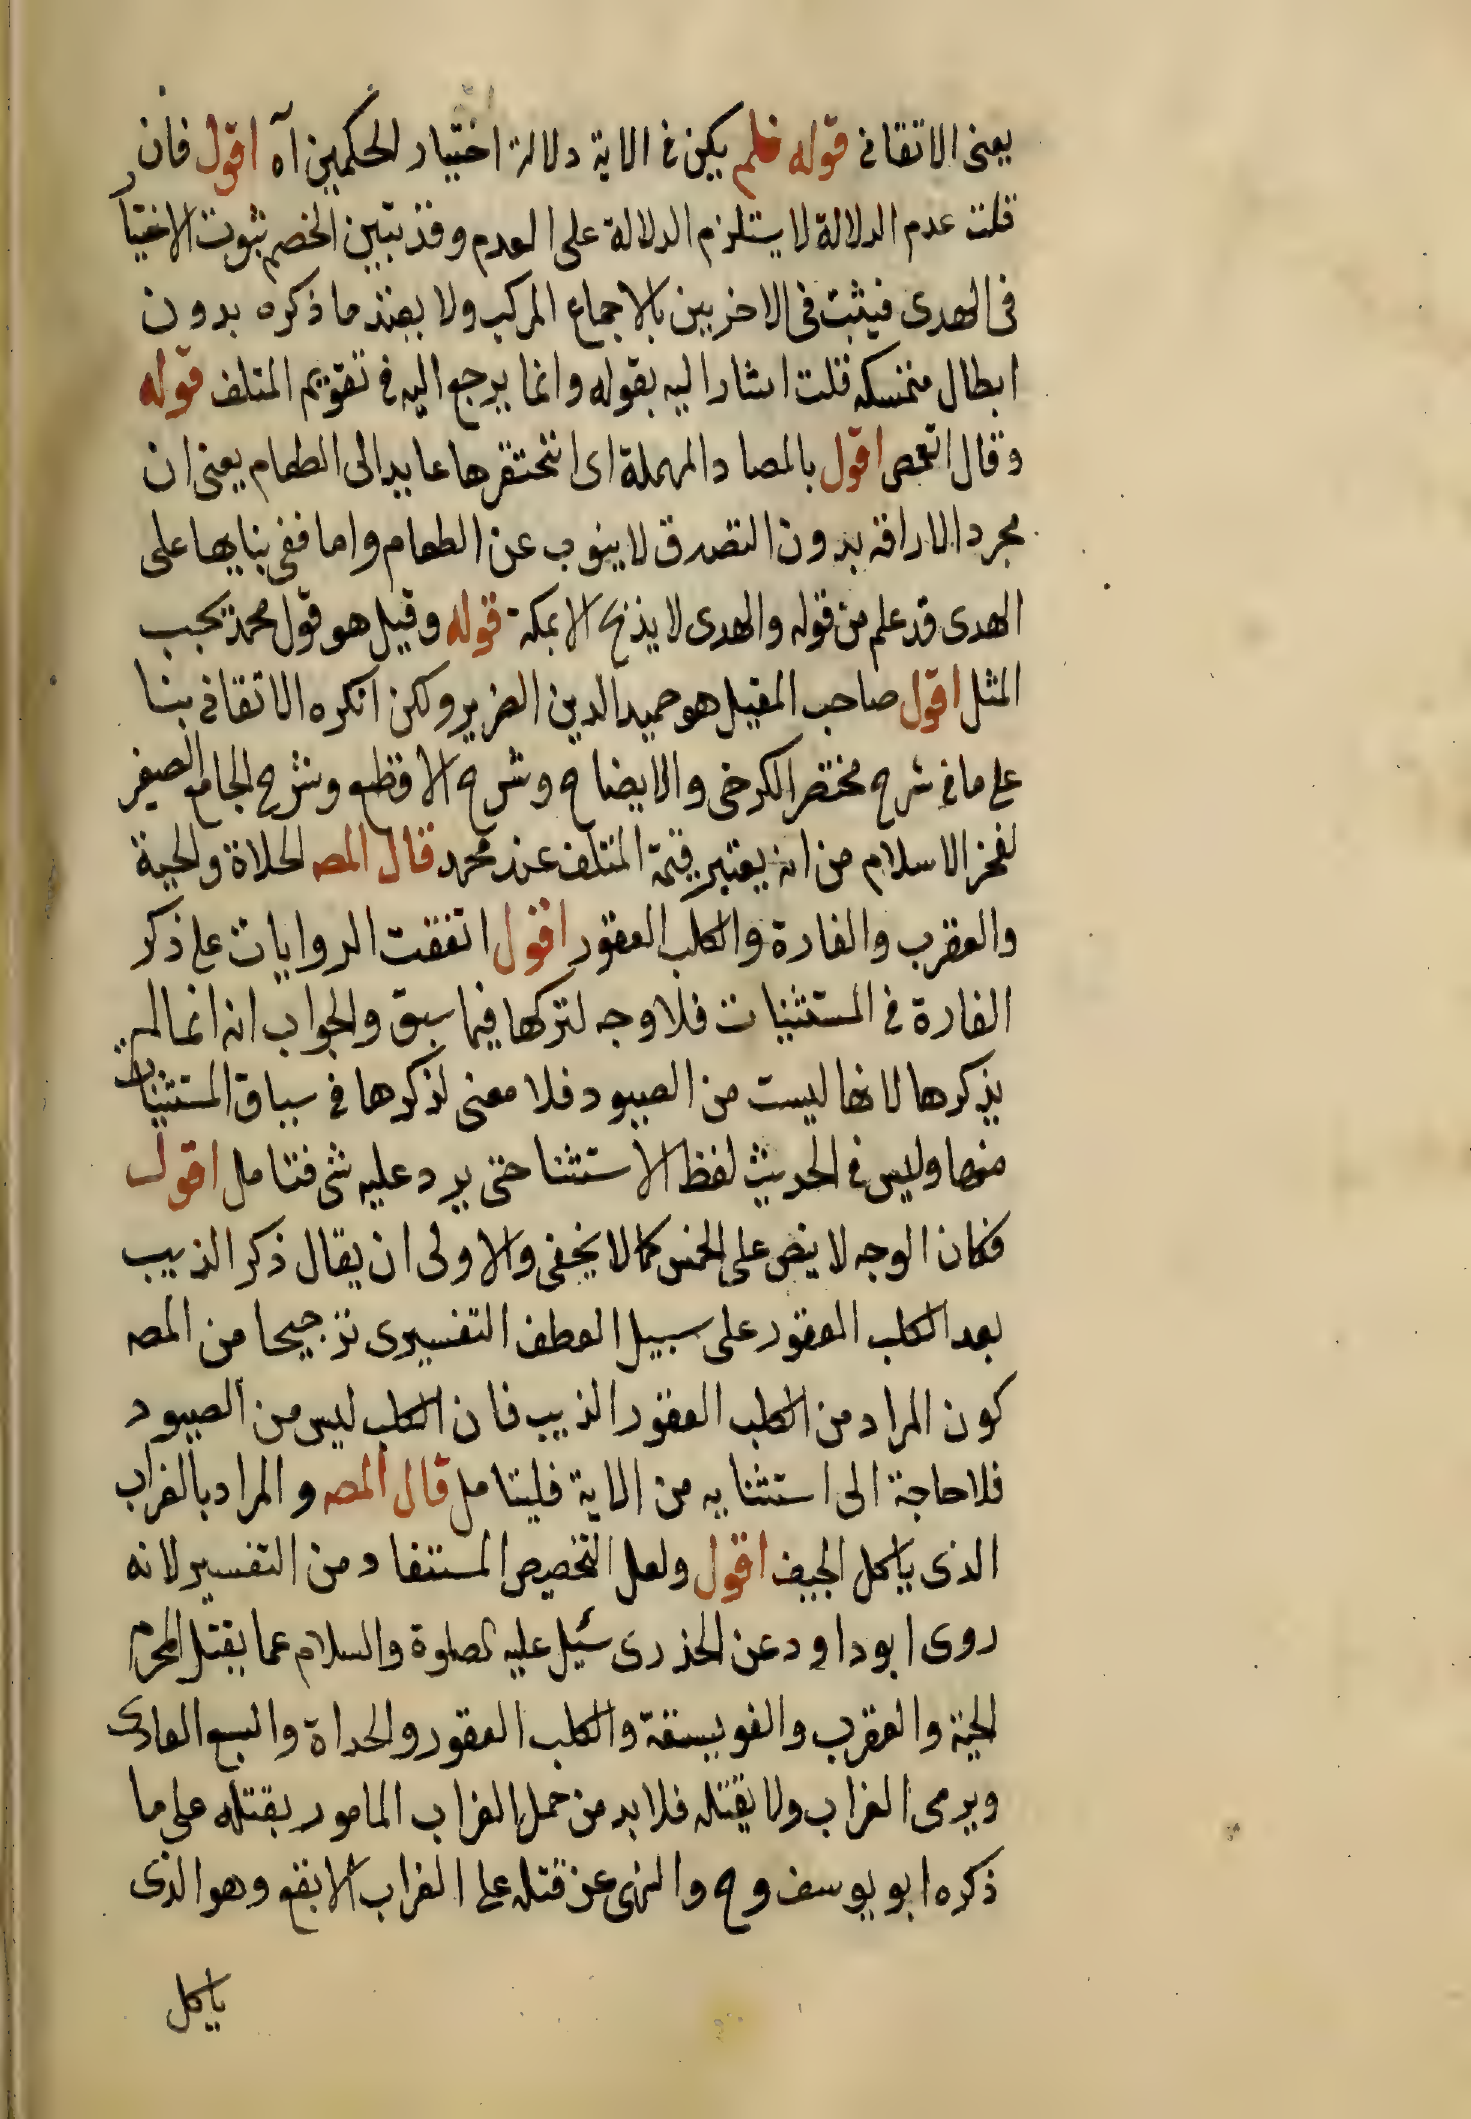 يعنى الاتقانى قوله فلم يكن فى الاية دلالة اختيار الحكمين آه اقول فان
قلت عدم الدلالة لا يستلزم الدلالة على العدم وقد تبين الخصم ثبوت الاختيا
فى الهدى فيثبت فى الاخريين بالاجماع المركب ولا بعند ما ذكره بدون
ابطال متمسكه قلت اشار اليه بقوله وانما يرجع اليه فى تقويم المتلف قوله
وقال اقول بالصاد المهملة اى عايد الى الطعام يعنى ان
مجرد الاراقه بدون التصدق لا ينوب عن الطعام واما ففى بنايها على
الهدى قد علم من قوله والهدى لا يذبح الا بمكة قوله وقيل هو قول محمد يجب
المثل اقول صاحب القيل هو حميد الدين الضرير ولكن انكره الاتقانى بنا
على ما فى شرح مختصر الكرخى والايضاح وشرح الاقطع وشرح الجامع الصغير
لفخر الاسلام من انه يعتبر قيمة المتلف عند محمد قال المصه الحلاة والحية
والعقرب والفارة والكلب العقور اقول اتفقت الروايات على ذكر
الفارة فى المستثنيات فلا وجه لتركها فيما سبق والجواب انه انما لم
يذكرها لانها ليست من الصيود فلا معنى لذكرها فى سياق المستثنيات
منها وليس فى الحديث لفظ الاستثنا حتى يرد عليه شى فتامل اقول
فكان الوجه لا ينص على الخمس كما لا يخفى والاولى ان يقال ذكر الذيب
بعد الكلب العقور على سبيل العطف التفسيرى ترجيحا من المصه
كون المراد من الكلب العقور الذيب فان الكلب ليس من الصيود
فلا حاجة الى استثنايه من الاية فليتامل قال المصه والمراد بالغراب
الذى ياكل الجيف اقول ولعل التخصيص المستفاد من التفسير لانه
روى ابو داود عن الخدرى سئيل عليه الصلوة والسلام عما يقتل المحرم
الحية والعقرب والفويسقة والكلب العقور والحداة والسبع العادى
ويرمى الغراب ولا يقتله فلا بد من حمل الغراب المامور بقتله على ما
ذكره ابو يوسف وح والنهى عن قتله على الغراب الابقع وهو الذى
ياكل